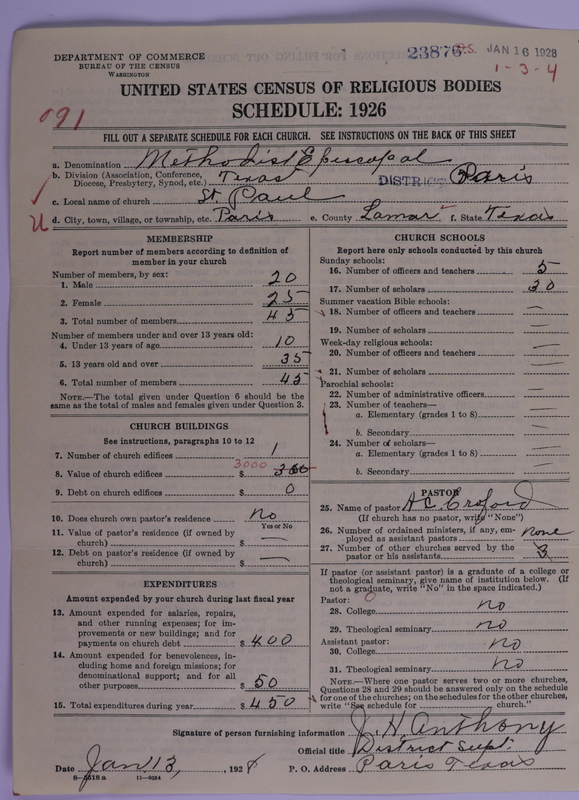 DEPARTMENT OF COMMERCE
BUREAU OF THE CENSUS
WASHINGTON
23876 P.S. JAN 16 1928
1-3-4
UNITED STATES CENSUS OF RELIGIOUS BODIES
SCHEDULE: 1926
091
FILL OUT A SEPARATE SCHEDULE FOR EACH CHURCH. SEE INSTRUCTIONS ON THE BACK OF THIS SHEET
a. Denomination Methodist Episcopal
b. Division (Association, Conference, Diocese, Presbytery, Synod, etc.) Texas DISTRICT Paris
c. Local name of church St. Paul
U d. City, town, village, or township, etc. Paris e. County Lamar f. State Texas
MEMBERSHIP
Report number of members according to definition of
member in your church
Number of members, by sex:
1. Male 20
2. Female 25
3. Total number of members 45
Number of members under and over 13 years old:
4. Under 13 years of age 10
5. 13 years old and over 35
6. Total number of members 45
NOTE.—The total given under Question 6 should be
same as the total of males and females given under Question 3.
CHURCH BUILDINGS
See instructions, paragraphs 10 to 12
7. Number of church edifices 1
8. Value of church edifices $ 3000 300
9. Debt on church edifices $ 0
10. Does church own pastor's residence No
Yes or No
11. Value of pastor's residence (if owned by
church) $ —
12. Debt on pastor's residence (if owned by
church) $ —
EXPENDITURES
Amount expended by your church during last fiscal year
13. Amount expended for salaries, repairs,
and other running expenses; for im-
provements or new buildings; and for
payments on church debt $ 400
14. Amount expended for benevolences, in-
cluding home and foreign missions; for
denominational support; and for all
other purposes $ 50
15. Total expenditures during year $ 450
CHURCH SCHOOLS
Report here only schools conducted by this church
Sunday schools:
16. Number of officers and teachers 5
17. Number of scholars 30
Summer vacation Bible schools:
18. Number of officers and teachers —
19. Number of scholars —
Week-day religious schools:
20. Number of officers and teachers —
21. Number of scholars —
Parochial schools:
22. Number of administrative officers —
23. Number of teachers—
a. Elementary (grades 1 to 8) —
b. Secondary —
24. Number of scholars—
a. Elementary (grades 1 to 8) —
b. Secondary —
PASTOR
25. Name of pastor A C Croford
(If church has no pastor, write "None")
26. Number of ordained ministers, if any, em-
ployed as assistant pastors none
27. Number of other churches served by the
pastor or his assistants 3
If pastor (or assistant pastor) is a graduate of a college or
theological seminary, give name of institution below. (If
not a graduate, write "No" in the space indicated.)
Pastor: 0
28. College no
29. Theological seminary no
Assistant pastor:
30. College no
31. Theological seminary no
NOTE.—Where one pastor serves two or more churches,
Questions 28 and 29 should be answered only on the schedule
for one of the churches; on the schedules for the other churches,
write "See schedule for church."
Signature of person furnishing information J. H Anthony
Official title District Supt.
Date Jan 13, 1928 P. O. Address Paris Texas
11—9094